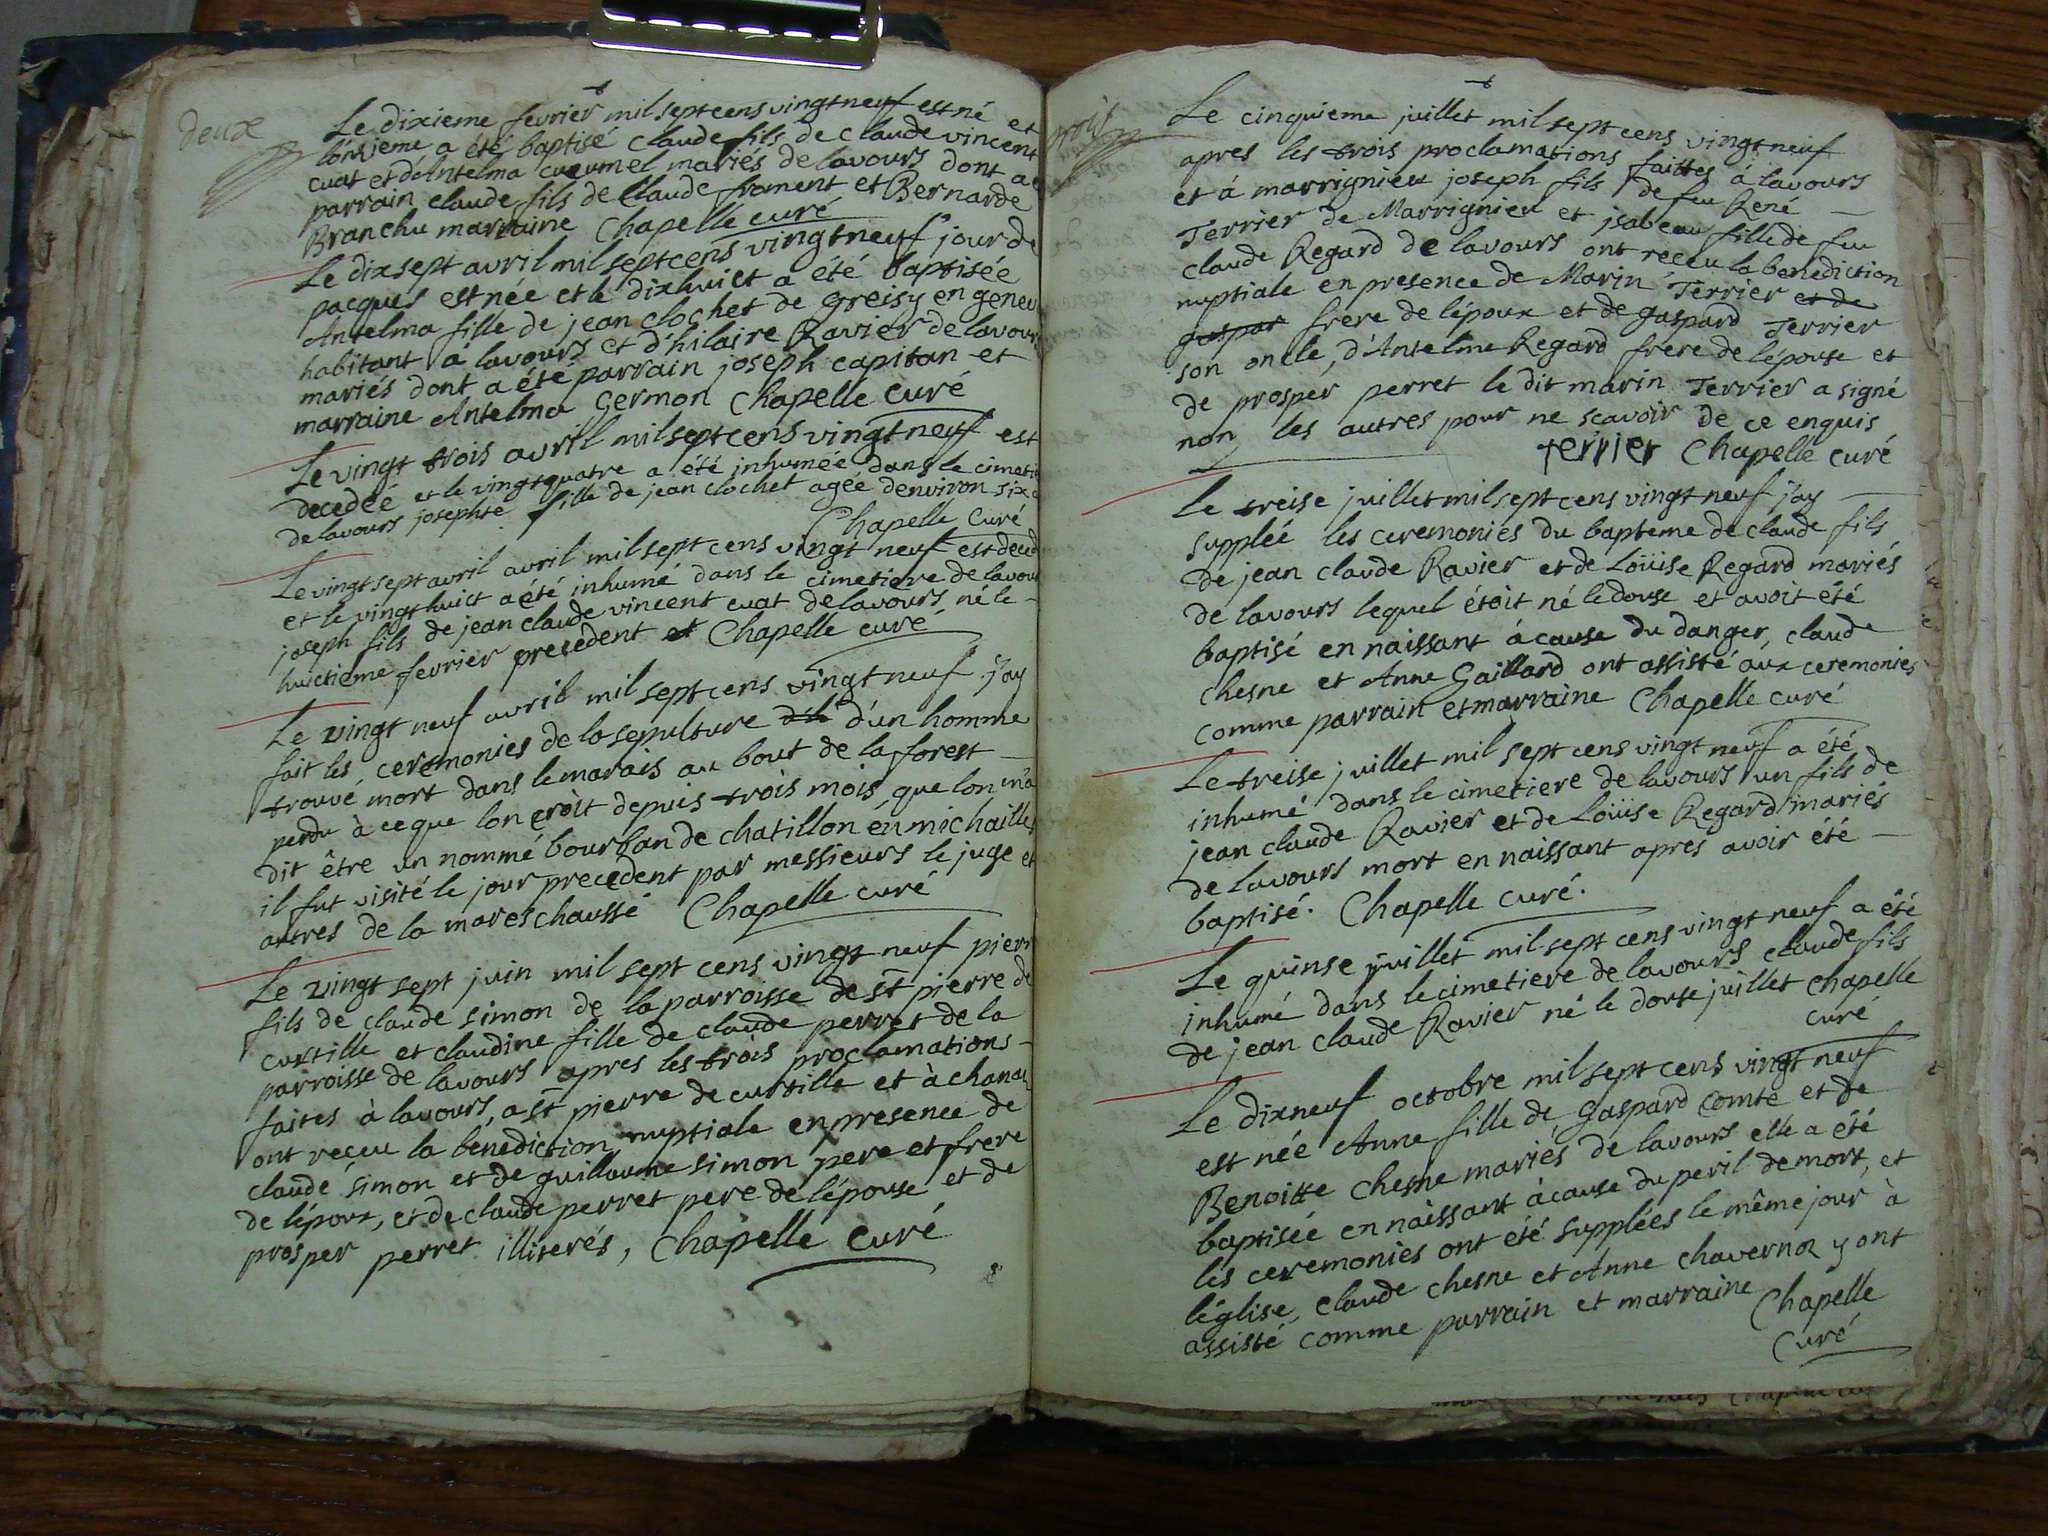 deux
Le dixieme fevrier mil sept cens vingt neuf est né et
lonsieme a été baptisé claude fils de claude vincent
cuat et d'Antelma cucumel mariés de lavours dont a
parrain claude fils de claude froment et Bernarde
Branchu marraine Chapelle curé
Le dix sept avril mil sept cens vingt neuf jour de
pacques est née et le dixhuict a été baptisée
Antelma fille de jean clochet de Greisy en genev
habitant à lavours et d'hilaire Ravier de lavours
mariés dont a été parrain joseph capitan et
marraine Antelma Germon Chapelle curé
Le vingt trois avril mil sept cens vingt neuf est
decedeé et le vingtquatre a été inhumée dans le cimeti
de lavours josephte fille de jean clochet agée d'environ six
Chapelle curé
Le vingt sept avril avril mil sept cens vingt neuf est deced
et le vingt huict a été inhumé dans le cimetiere de lavour
joseph fils de jean claude vincent cuat de lavours, né le
huictieme fevrier precedent et Chapelle curé
Le vingt neuf avril mil sept cens vingt neuf j'ay
fait les ceremonies de la sepulture d'un homme
trouvé mort dans le marais au bout de la forest
perdu à ce que lon croit depuis trois mois, que lon m'a
dit être un nommé bourban de chatillon en michaille,
il fut visité le jour precedent par messieurs le juge et
autres de la mareschaussé Chapelle curé
Le vingt sept juin mil sept cens vingt neuf pierr
fils de claude simon de la parroisse de st pierre de
curtille et claudine fille de claude perret de la
parroisse de lavours apres les trois proclamations
faites à lavours, a st pierre de curtille et à chanaz
ont reçeu la bénediction nuptiale en presence de
claude simon et de guillaume simon pere et frere
de lépoux, et de claude perret pere de lépouse et de
prosper perret illiterés, Chapelle curé
trois
Le cinquieme juillet mil sept cens vingt neuf
apres les trois proclamations faittes à lavours
et à marrignieu joseph fils de feu René
Terrier de Marrignieu et jsabeau fille de feu
claude Regard de lavours ont receu la benediction
nuptiale en presence de Marin Terrier et de
gaspar frere de lépoux et de gaspard Terrier
son oncle, d'Antelme Regard frere de lépouse et
de prosper perret le dit marin Terrier a signé
non les autres pour ne scavoir de ce enquis
terrier Chapelle curé
Le treise juillet mil sept cens vingt neuf j'ay
suppleé les ceremonies du bapteme de claude fils
de jean claude Ravier et de Loüise Regard mariés
de lavours lequel étoit né le douse et avoit été
baptisé en naissant à cause du danger, claude
chesne et Anne Gaillard ont assisté aux ceremonies
comme parrain et marraine Chapelle curé
Le treise juillet mil sept cens vingt neuf a été
inhumé dans le cimetiere de lavours un fils de
jean claude Ravier et de Loüise Regard mariés
de lavours mort en naissant apres avoir été
baptisé. Chapelle curé.
Le quinse juillet mil sept cens vingt neuf a été
inhumé dans le cimetiere de lavours claude fils
de jean claude Ravier né le douse juillet Chapelle
curé
Le dixneuf octobre mil sept cens vingt neuf
est née Anne fille de gaspard comte et de
Benoitte chesne mariés de lavours elle a été
baptisée en naissant à cause du peril de mort, et
les ceremonies ont été suppleés le même jour à
léglise, claude chesne et Anne chavernoz y ont
assisté comme parrain et marraine Chapelle
curé